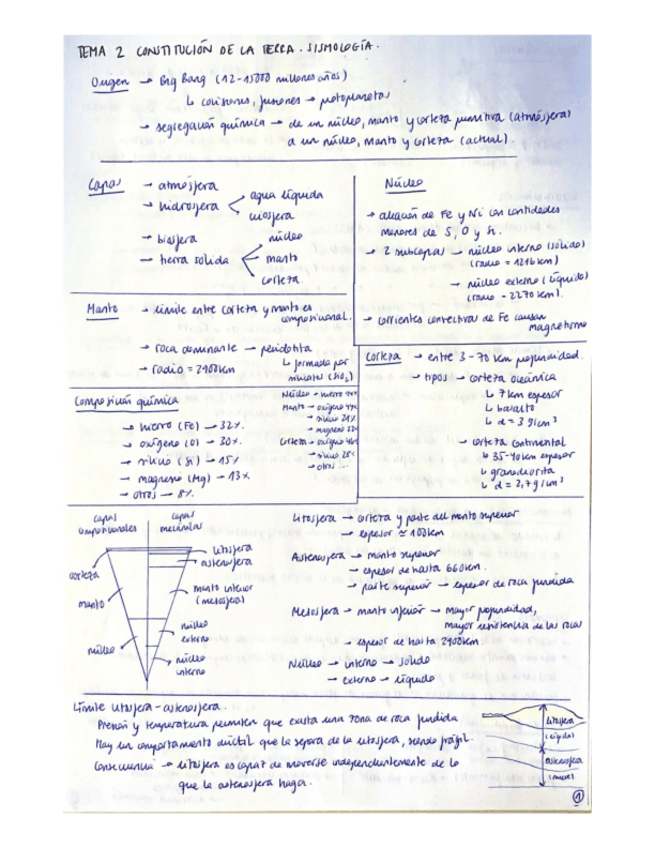 TEMA 2 CONSTITUCIÓN DE LA TIERRA. SISMOLOGÍA.
Origen → Big Bang (12-15000 millones años)
↳ colisiones, fusiones → protoplanetas
→ segregación química → de un núcleo, manto y corteza primitiva (atmósfera)
a un núcleo, manto y corteza (actual).
Capas → atmósfera
→ hidrosfera < agua líquida
criosfera
→ biosfera
→ tierra sólida < núcleo
manto
corteza.
Núcleo
→ aleación de Fe y Ni con cantidades
menores de S, O y Si.
→ 2 subcapas → núcleo interno (sólido)
(radio = 1216 km)
→ núcleo externo (líquido)
(radio = 2270 km).
→ corrientes convectivas de Fe causan
magnetismo
Manto → límite entre corteza y manto es
composicional.
→ roca dominante → peridotita
↳ formada por
silicatos (SiO₂)
→ radio = 2900 km
Corteza → entre 3-70 km profundidad.
→ tipos → corteza oceánica
↳ 7 km espesor
↳ basalto
↳ d = 3 g/cm³
→ corteza continental
↳ 35-40 km espesor
↳ granodiorita
↳ d = 2,7 g/cm³
Composición química
→ hierro (Fe) → 32%.
→ oxígeno (O) → 30%.
→ silicio (Si) → 15%
→ magnesio (Mg) → 13%
→ otros → 8%.
Núcleo → hierro
Manto → oxígeno 44%
→ silicio 21%
→ magnesio 22%
Corteza → oxígeno 46%
→ silicio 28%
→ otros ...
capas
composicionales
capas
mecánicas
corteza
manto
núcleo
litosfera
astenosfera
manto inferior
(mesosfera)
núcleo
externo
núcleo
interno
Litosfera → corteza y parte del manto superior
→ espesor ≃ 100 km
Astenosfera → manto superior
→ espesor de hasta 660 km.
→ parte superior → espesor de roca fundida
Mesosfera → manto inferior → mayor profundidad,
mayor resistencia de las rocas
→ espesor de hasta 2900 km
Núcleo → interno → sólido
→ externo → líquido
Límite litosfera-astenosfera.
Presión y temperatura permiten que exista una zona de roca fundida
Hay un comportamiento dúctil que la separa de la litosfera, siendo frágil.
Consecuencia → litosfera es capaz de moverse independientemente de lo
que la astenosfera haga.
litosfera
(rígida)
astenosfera
1